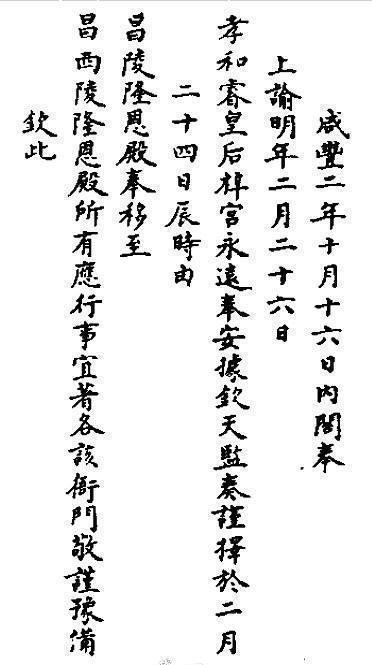 咸豐二年十月十六日内閣奉
上諭明年二月二十六日
孝和睿皇后梓宮永遠奉安據欽天監奏謹擇於二月
二十四日辰時由
昌陵隆恩殿奉移至
昌西陵隆恩殿所有應行事宜著各該衙門敬謹豫備
欽此